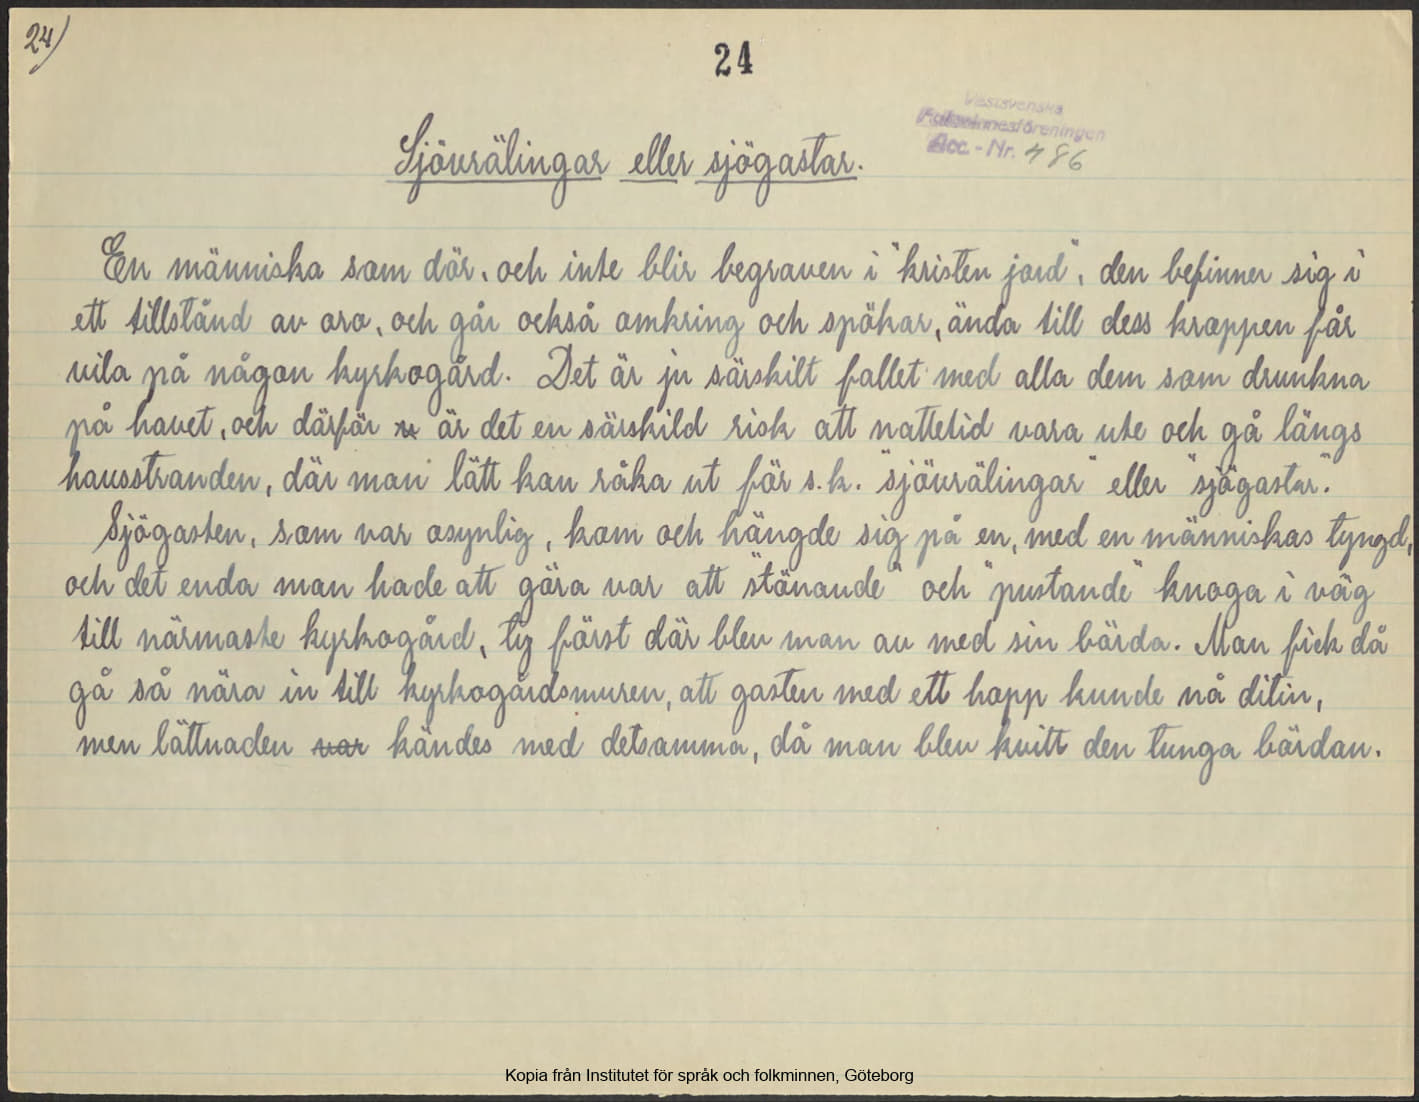 24)
24
Västsvenska
Folkminnesföreningen
Acc. - Nr. 486
Sjövrälingar eller sjögastar.
En människa som dör, och inte blir begraven i "kristen jord", den befinner sig i
ett tillstånd av oro, och går också omkring och spökar, ända till dess kroppen får
vila på någon kyrkogård. Det är ju särskilt fallet med alla dem som drunkna
på havet, och därför är det en särskild risk att nattetid vara ute och gå längs
havsstranden, där man lätt kan råka ut för s.k. "sjövrälingar" eller "sjögastar".
Sjögasten, som var osynlig, kom och hängde sig på en, med en människas tyngd,
och det enda man hade att göra var att "stönande" och "pustande" knoga i väg
till närmaste kyrkogård, ty först där blev man av med sin börda. Man fick då
gå så nära in till kyrkogårdsmuren, att gasten med ett hopp kunde nå ditin,
men lättnaden var kändes med detsamma, då man blev kvitt den tunga bördan.
Kopia från Institutet för språk och folkminnen, Göteborg